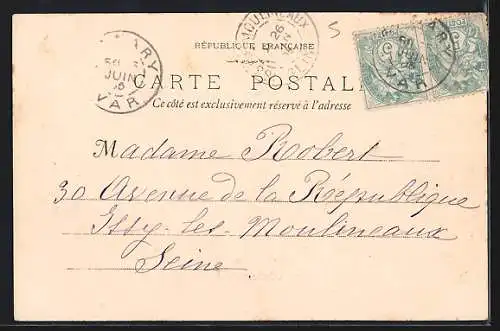 MOULINEAUX
26
5
RÉPUBLIQUE FRANÇAISE
JUIN
VAR
VAR
CARTE POSTALE
Ce côté est exclusivement réservé à l'adresse
Madame Robert
30 Avenue de la République
Issy-les-Moulineaux
Seine